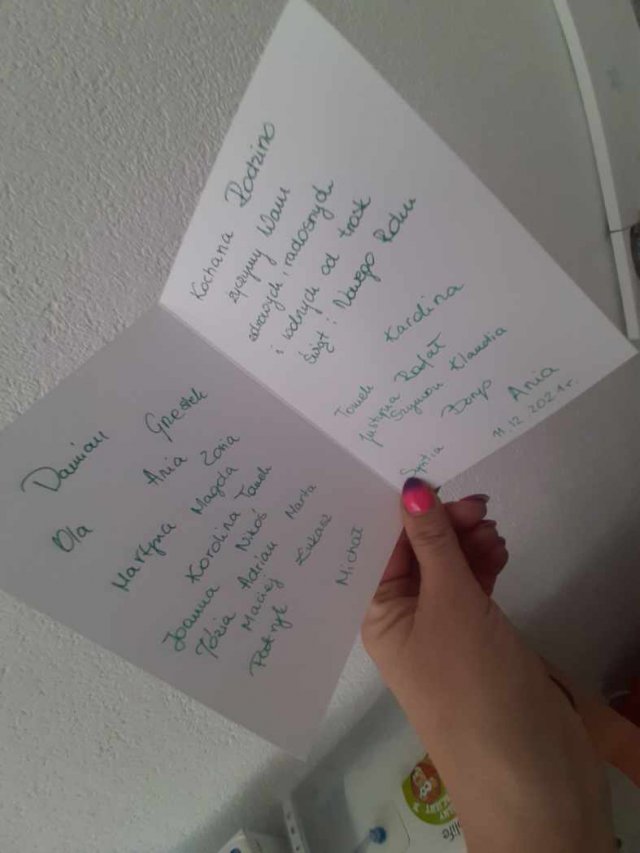 Damian Grostek
Ola Ania Zosia
Martyna Magda
Joanna Karolina Tomek
Józia Nikoś
Maciej Adrian Marta
Patryk Łukasz
Michał
Kochana Rodzino
życzymy Wam
zdrowych, radosnych
i wolnych od trosk
Świąt i Nowego Roku
Tomek Karolina
Justyna Rafał
Szymon Klaudia
Ania
11.12.2021r.
life